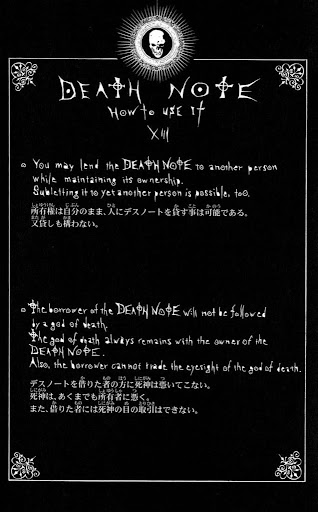 DEATH NOTE
How to use it
XIII
You may lend the DEATH NOTE to another person
while maintaining its ownership.
Subletting it to yet another person is possible, too.
所有権は自分のまま、人にデスノートを貸す事は可能である。
又貸しも構わない。
The borrower of the DEATH NOTE will not be followed
by a god of death.
The god of death always remains with the owner of the
DEATH NOTE.
Also, the borrower cannot trade the eyesight of the god of death.
デスノートを借りた者の方に死神は憑いてこない。
死神は、あくまでも所有者に憑く。
また、借りた者には死神の目の取引はできない。